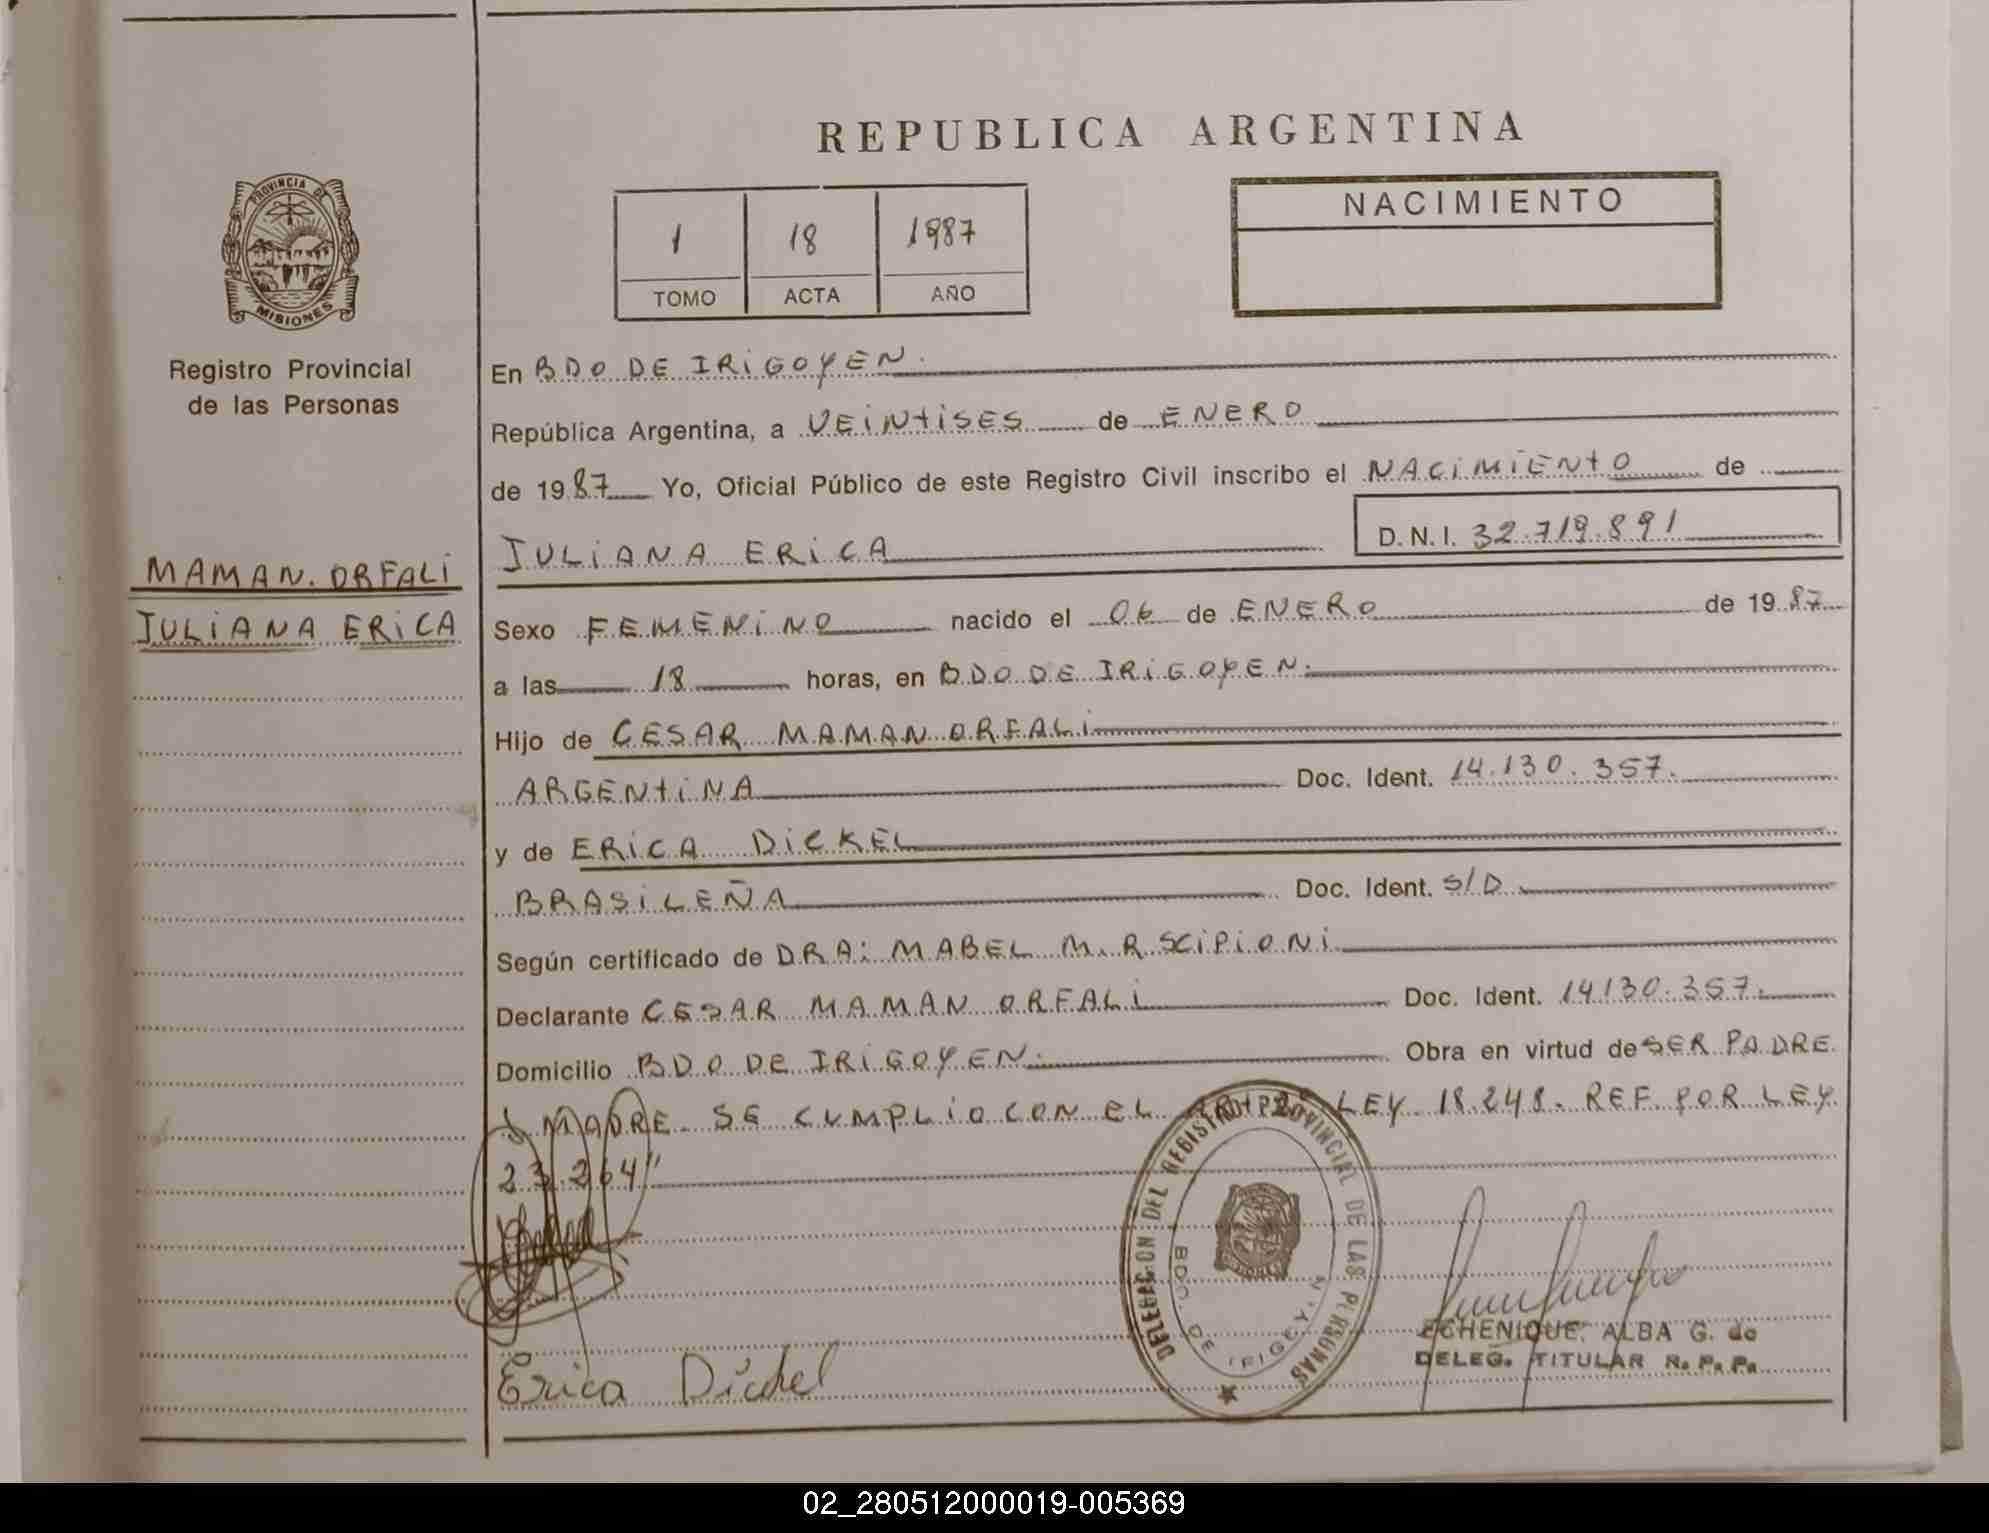 REPUBLICA ARGENTINA
PROVINCIA DE
MISIONES
Registro Provincial
de las Personas
MAMAN. ORFALI
JULIANA ERICA
1 18 1987
TOMO ACTA AÑO
NACIMIENTO
En BDO DE IRIGOYEN.
República Argentina, a VEINTISES de ENERO
de 1987 Yo, Oficial Público de este Registro Civil inscribo el NACIMIENTO de
JULIANA ERICA D.N.I. 32.719.891
Sexo FEMENINO nacido el 06 de ENERO de 1987
a las 18 horas, en BDO DE IRIGOYEN.
Hijo de CESAR MAMAN ORFALI
ARGENTINA Doc. Ident. 14.130.357.
y de ERICA DICKEL
BRASILEÑA Doc. Ident. S/D
Según certificado de DRA: MABEL M. R SCIPIONI
Declarante CESAR MAMAN ORFALI Doc. Ident. 14130.357.
Domicilio BDO DE IRIGOYEN. Obra en virtud de SER PADRE
Y MADRE. SE CUMPLIO CON EL LEY 18.248. REF POR LEY
23.264"
DELEGACION DEL REGISTRO PROVINCIAL DE LAS PERSONAS
BDO. DE IRIGOYEN
ECHENIQUE, ALBA G. de
DELEG. TITULAR R. P. P.
Erica Dickel
02_280512000019-005369